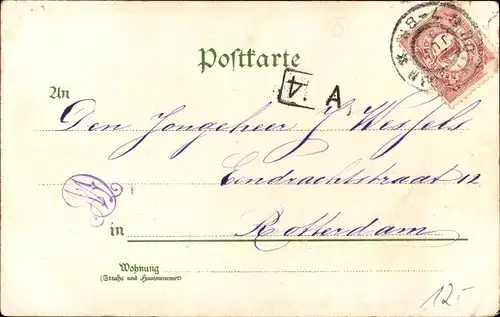 Postkarte
4 A
An
Den Jongeheer J Wessels
Eendrachtstraat 12
in Rotterdam
Wohnung
(Straße und Hausnummer)
12.-